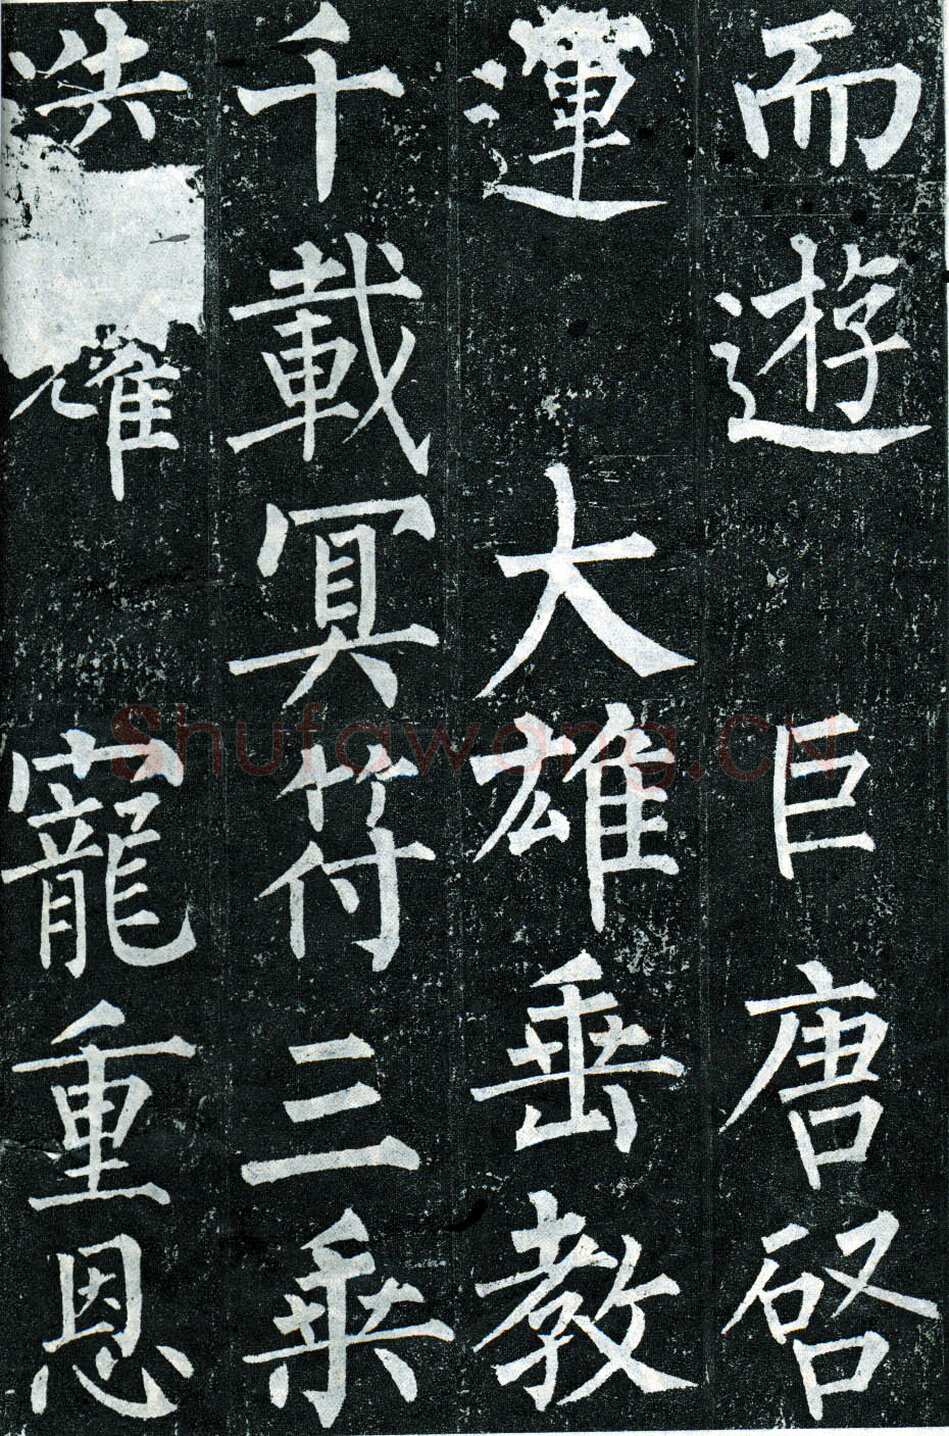 而遊 巨唐啓
運 大雄垂教
千載冥符三乗
耀 寵重恩
Shufawang.CN